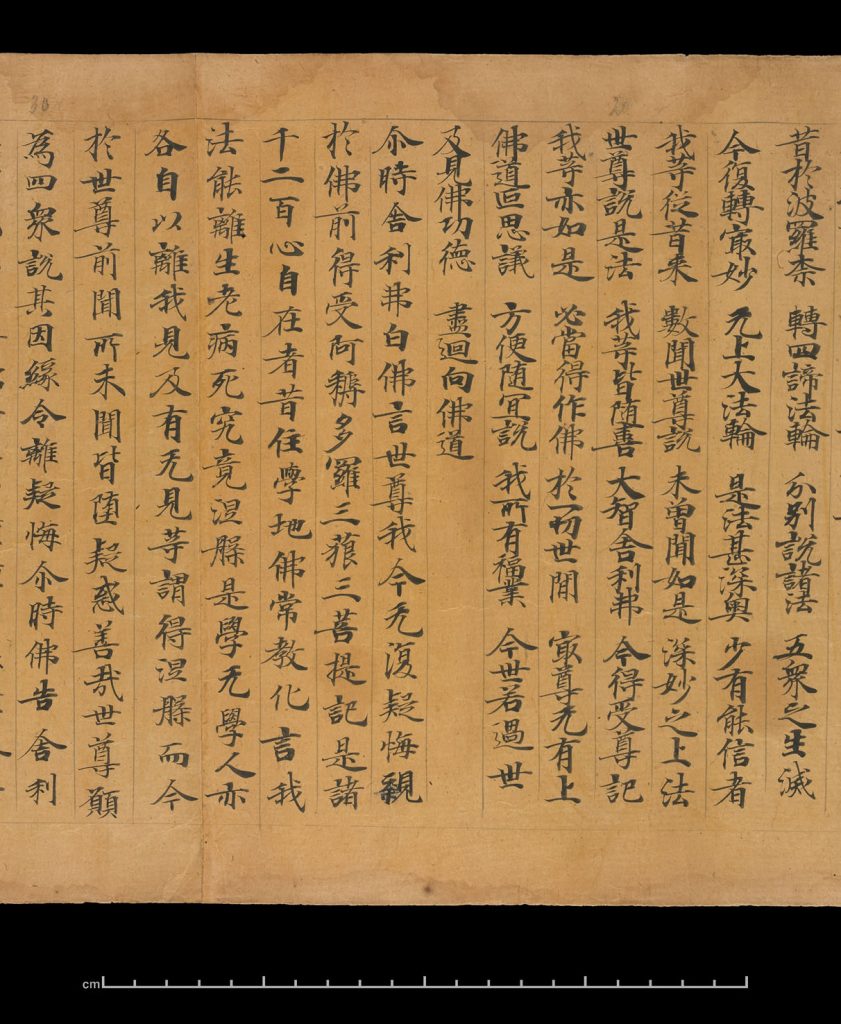 昔於波羅柰 轉四諦法輪 分別說諸法 五衆之生滅
今復轉㝡妙 无上大法輪 是法甚深奧 少有能信者
我等從昔来 數聞世尊說 未曽聞如是 深妙之上法
世尊說是法 我等皆随喜 大智舎利弗 今得受尊記
我等亦如是 必當得作佛 於一切世間 㝡尊无有上
佛道叵思議 方便随宜說 我所有福業 今世若過世
及見佛功德 盡迴向佛道
尒時舎利弗白佛言世尊我今无復疑悔親
於佛前得受阿耨多羅三藐三菩提記是諸
千二百心自在者昔住學地佛常教化言我
法能離生老病死究竟涅槃是學无學人亦
各自以離我見及有无見等謂得涅槃而今
於世尊前聞所未聞皆墮疑惑善哉世尊願
為四衆說其因緣令離疑悔尒時佛告舎利
cm